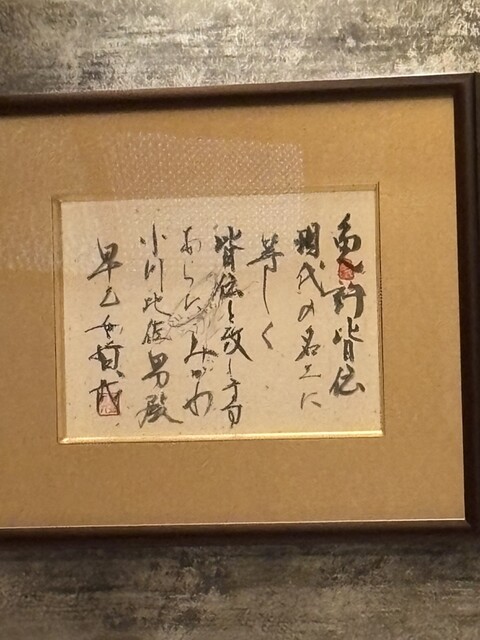 免許皆伝
現代の名工に
等しく
皆伝と致します
あらた みかわ
小川比佐男殿
早乙女哲哉